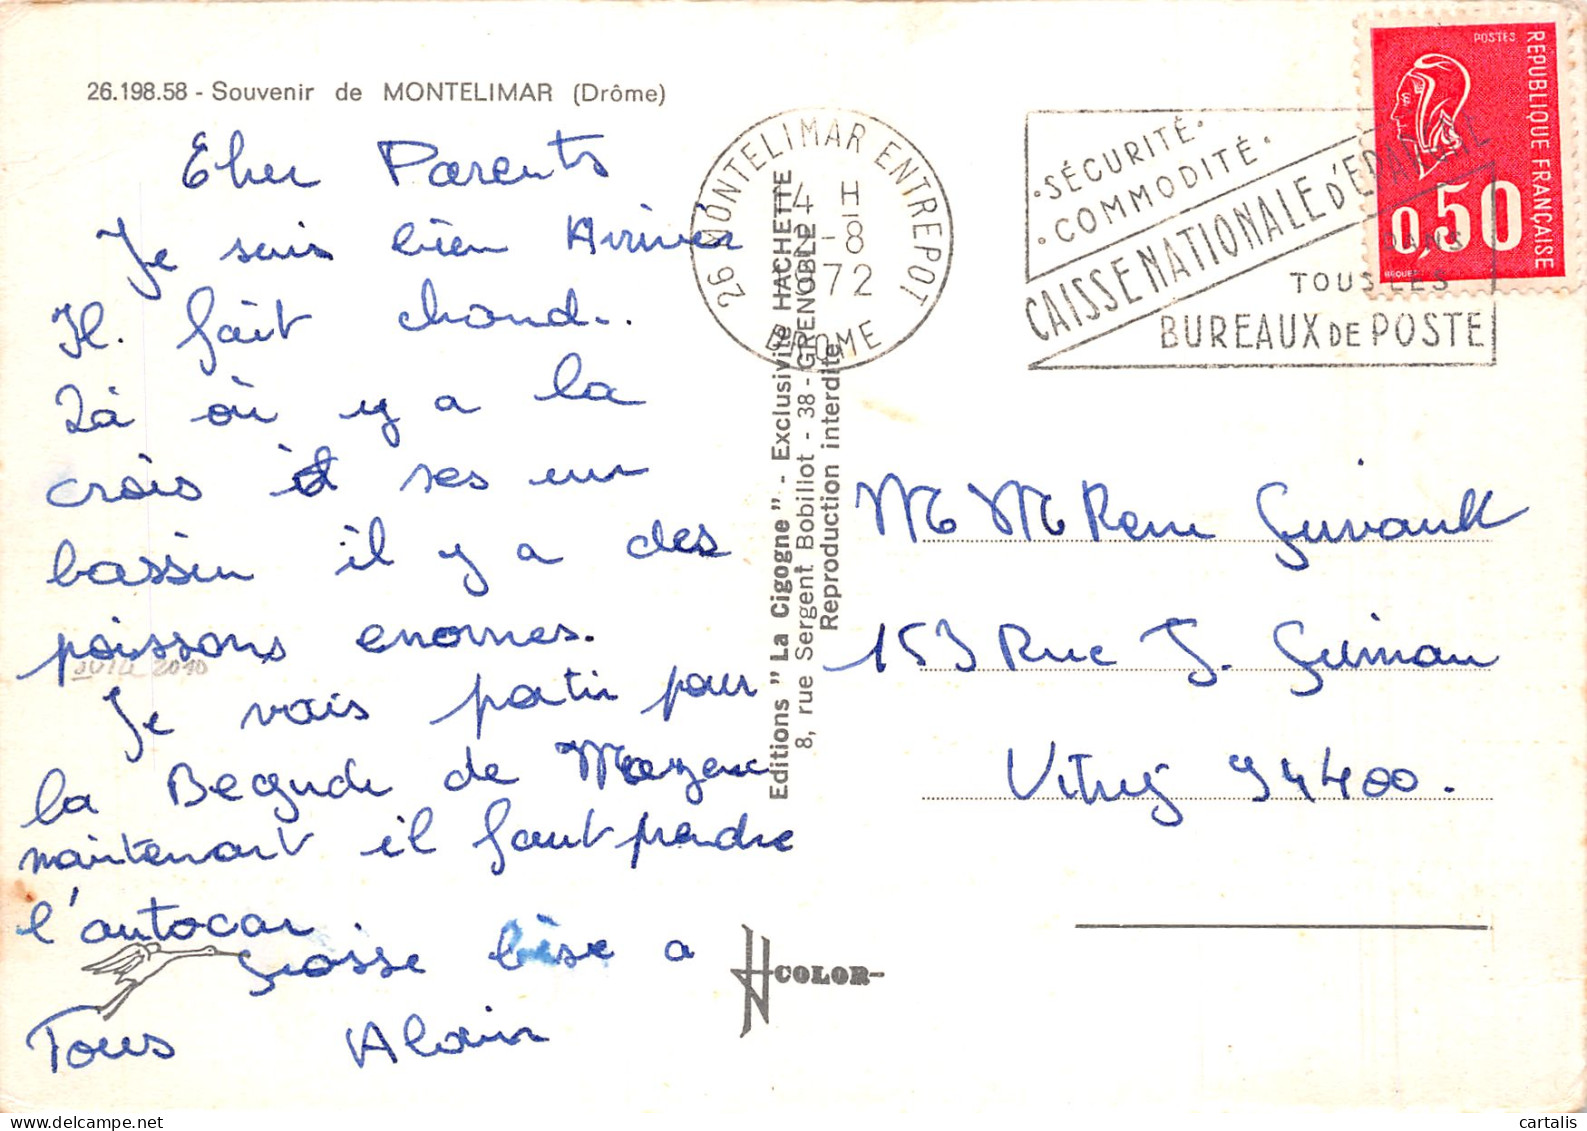 26.198.58 - Souvenir de MONTELIMAR (Drôme)
Cher Parents
Je suis bien Arrivér
Il fait chaud.
Là où y a la
crois et ses un
bassin il y a des
poissons enormes.
JUIL 2010
Je vais partir pour
la Begude de Mazenc
maintenant il faut prendre
l'autocar.
Grosse bise a
Tous Alain
Editions " La Cigogne " - Exclusivité HACHETTE
8, rue Sergent Bobillot - 38 - GRENOBLE
Reproduction interdite
HCOLOR
26 MONTELIMAR ENTREPOT
14 H
2-8
1972
DROME
·SÉCURITÉ·
·COMMODITÉ·
CAISSE NATIONALE D'ÉPARGNE
DANS
TOUS LES
BUREAUX DE POSTE
POSTES
REPUBLIQUE FRANÇAISE
0,50
BEQUET
M M René
153 Rue J.
Vitry 94400.
cartalis